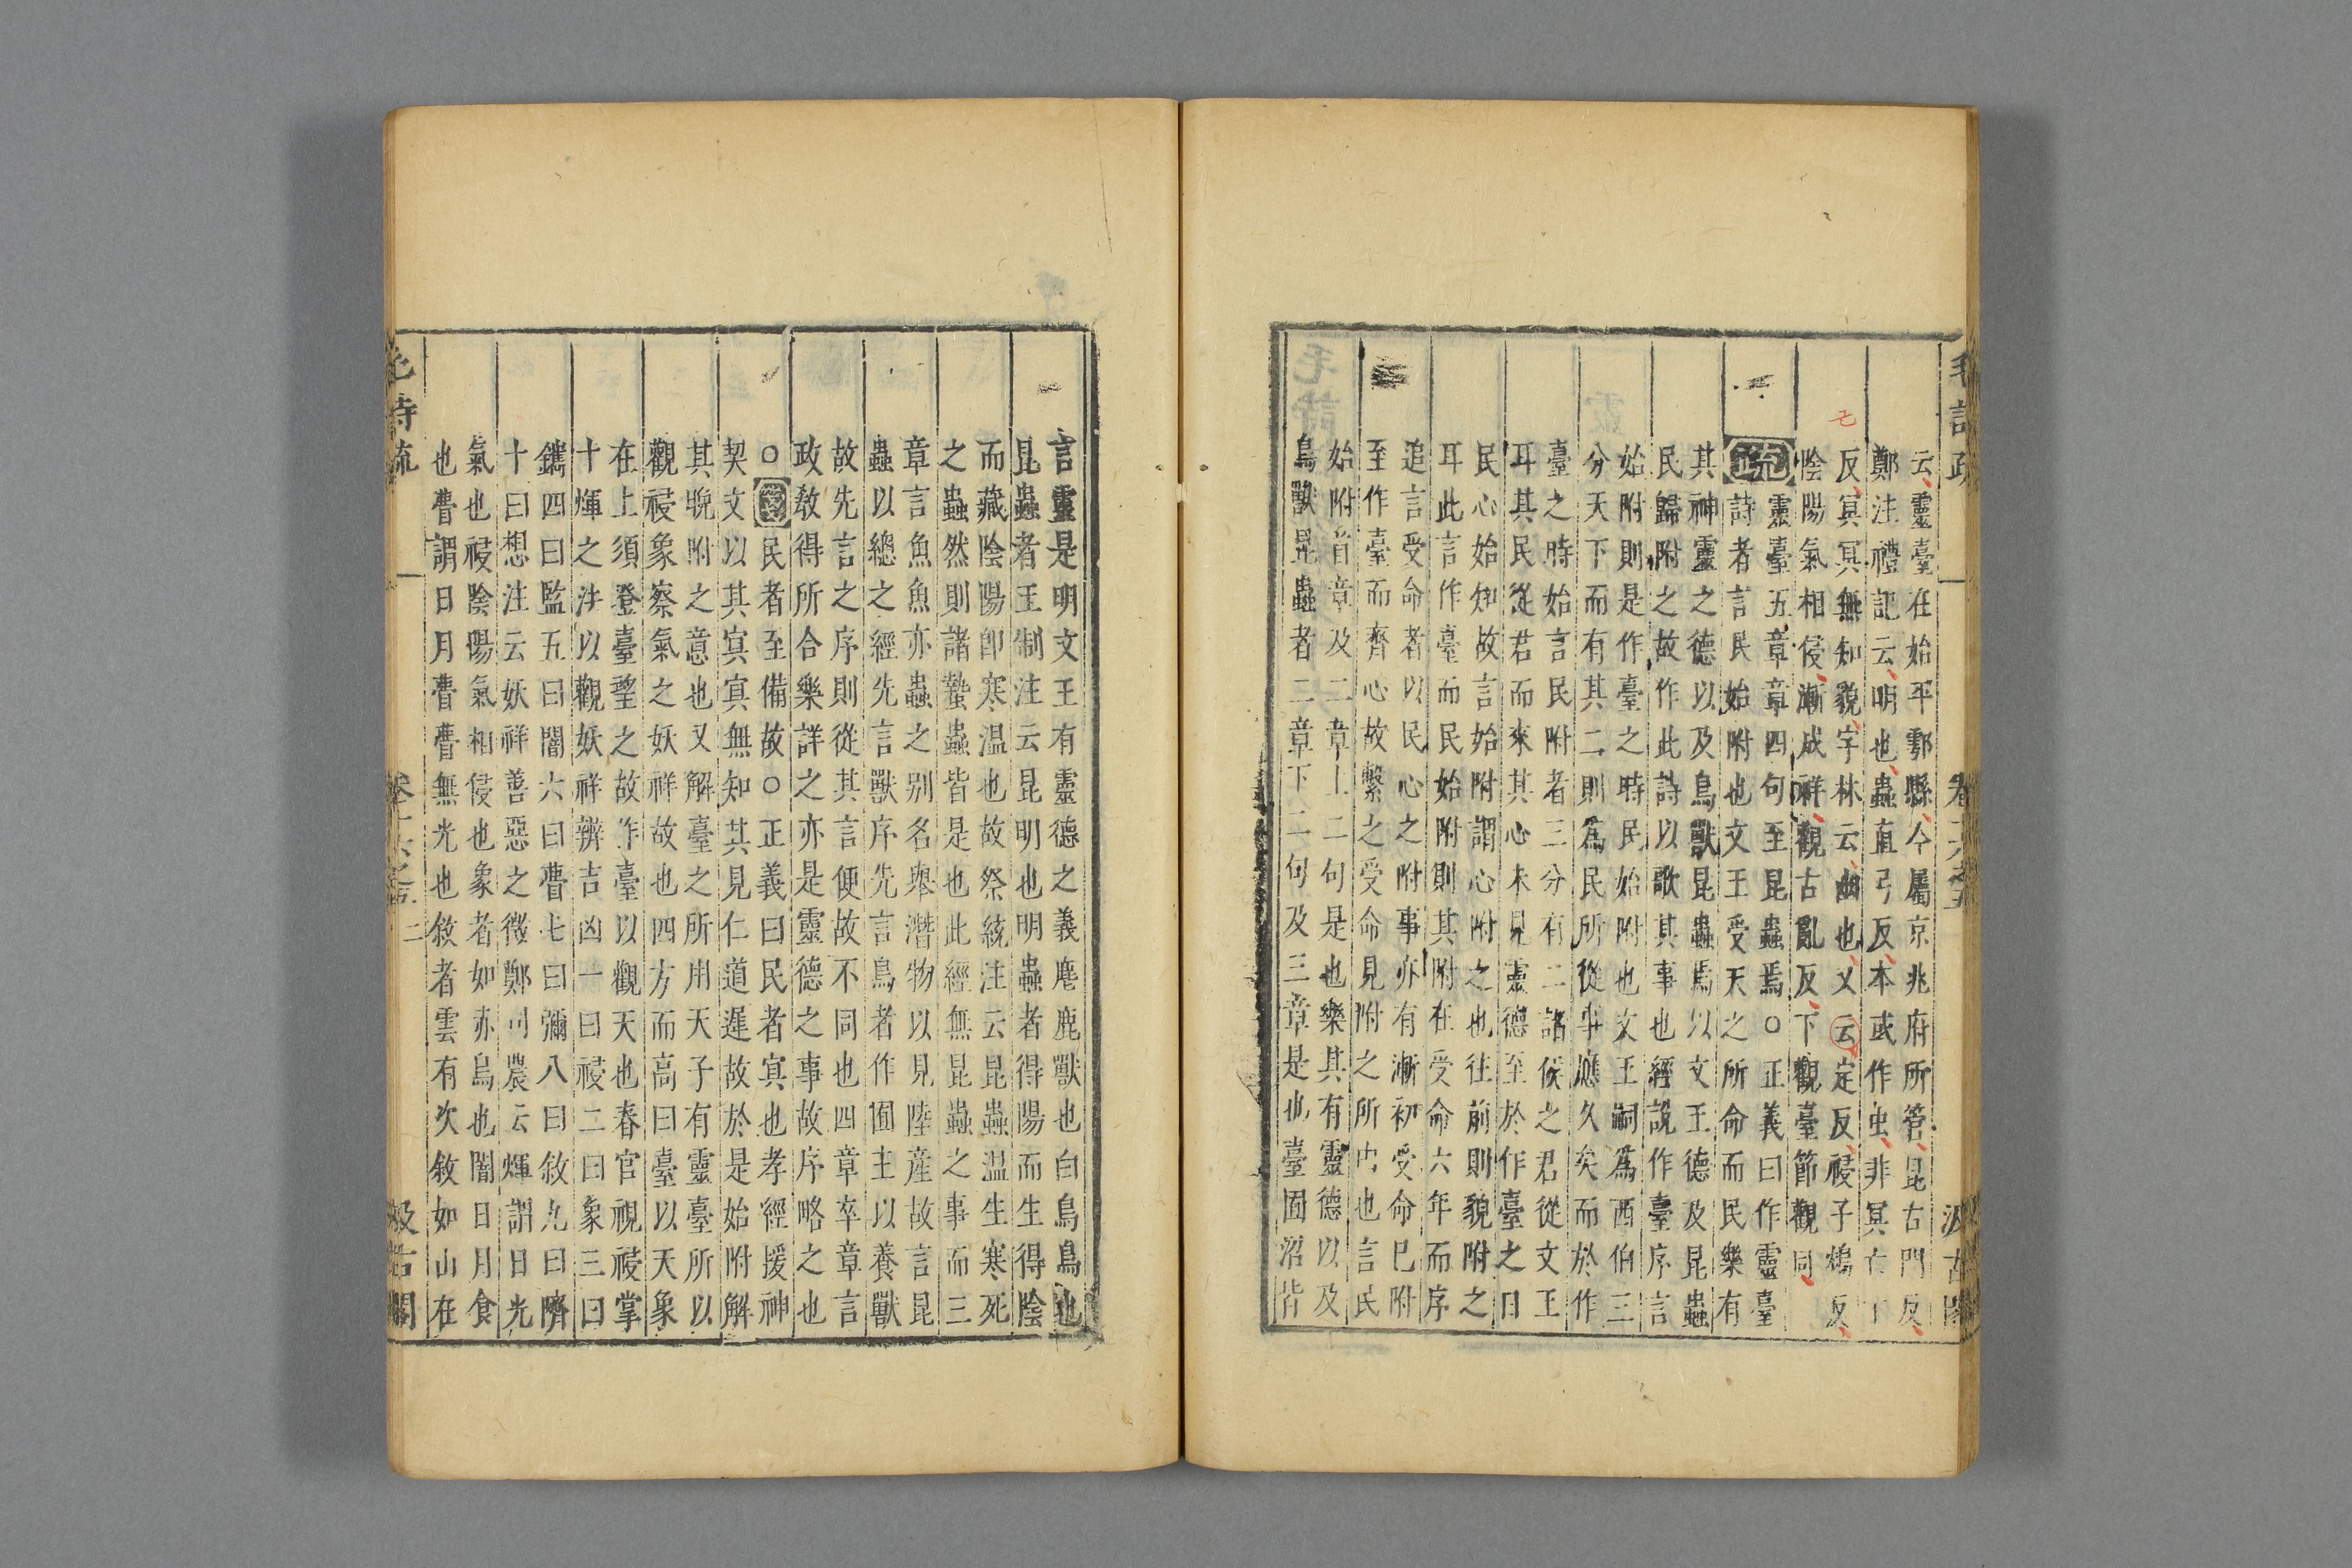 毛詩疏
云靈臺在始平鄠縣今屬京兆府所管昆古門反
鄭注禮記云明也蟲直弓反本或作虫非冥亡丁
反冥冥無知貌字林云幽也又云定反祲子鴆反
陰陽氣相侵漸成祥觀古亂反下觀臺節觀同
靈臺五章章四句至昆蟲焉○正義曰作靈臺
疏詩者言民始附也文王受天之所命而民樂有
其神靈之德以及鳥獸昆蟲焉以文王德及昆蟲
民歸附之故作此詩以歌其事也經說作臺序言
始附則是作臺之時民始附也文王嗣為西伯三
分天下而有其二則為民所從事應久矣而於作
臺之時始言民附者三分有二諸侯之君從文王
耳其民從君而來其心未見靈德至於作臺之日
民心始知故言始附謂心附之也往前則貌附之
耳此言作臺而民始附則其附在受命六年而序
追言受命者以民心之附事亦有漸初受命已附
至作臺而齊心故繫之受命見附之所由也言民
始附首章及二章上二句是也樂其有靈德以及
鳥獸昆蟲者二章下二句及三章是也臺囿沼皆
言靈是明文王有靈德之義麀鹿獸也白鳥鳥也
昆蟲者王制注云昆明也明蟲者得陽而生得陰
而藏陰陽即寒温也故祭統注云昆蟲温生寒死
之蟲然則諸蟄蟲皆是也此經無昆蟲之事而三
章言魚魚亦蟲之别名舉潛物以見陸產故言昆
蟲以總之經先言獸序先言鳥者作囿主以養獸
故先言之序則從其言便故不同也四章卒章言
政教得所合樂詳之亦是靈德之事故序略之也
○箋民者至備故○正義曰民者冥也孝經援神
契文以其冥冥無知其見仁道遲故於是始附解
其晚附之意也又解臺之所用天子有靈臺所以
觀祲象察氣之妖祥故也四方而高曰臺以天象
在上須登臺望之故作臺以觀天也春官視祲掌
十煇之法以觀妖祥辨吉凶一曰祲二曰象三曰
鑴四曰監五曰闇六曰瞢七曰彌八曰敘九曰隮
十曰想注云妖祥善惡之徵鄭司農云煇謂日光
氣也祲陰陽氣相侵也象者如赤烏也闇日月食
也瞢謂日月瞢瞢無光也敘者雲有次敘如山在
毛詩疏